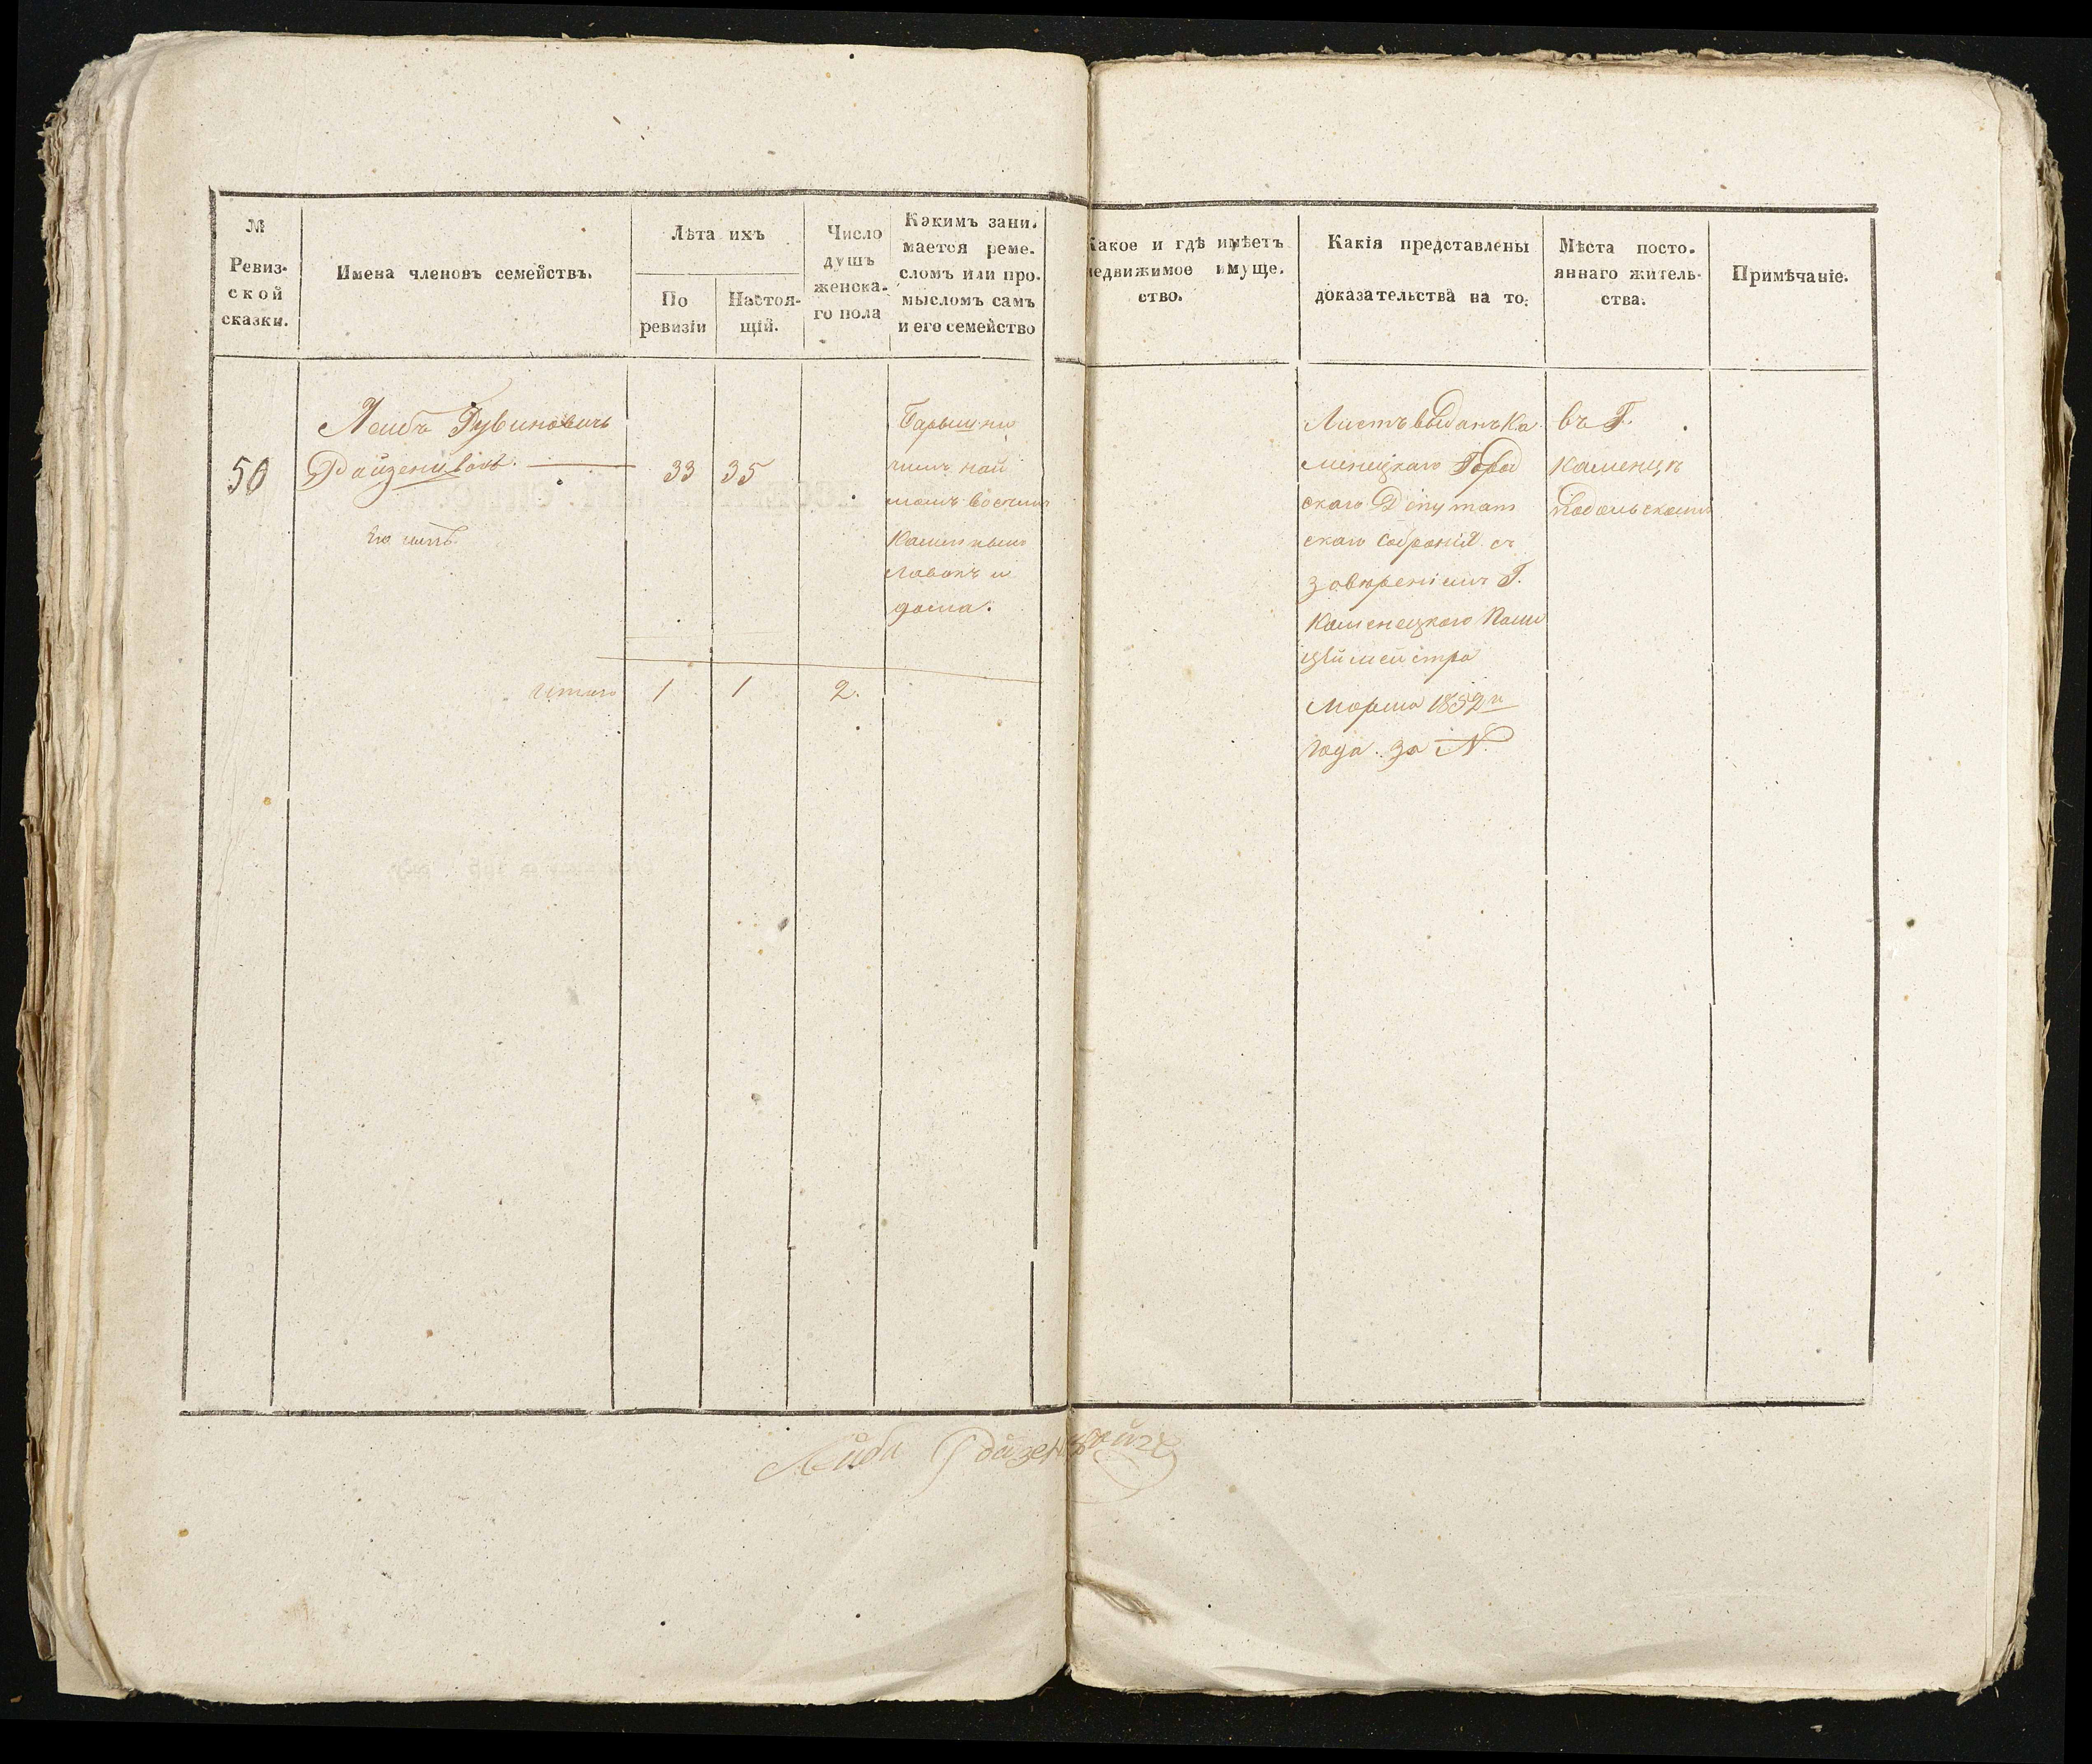 №
Ревиз-
ской
сказки.
Имена членовъ семействъ.
Лѣта ихъ
По
ревизіи
Настоя-
щій.
Число
душъ
женска-
го пола
Какимъ зани-
мается реме-
сломъ или про-
мысломъ самъ
и его семейство
Какое и гдѣ имѣетъ
недвижимое имуще-
ство.
Какія представлены
доказательства на то.
Мѣста посто-
яннаго житель-
ства.
Примѣчаніе.
50
Лейбъ Рувиновичъ
33 35
Его
Барышни
чимъ най
момъ
лавокъ и
дома.
Итого 1 1 2.
Листъ выданъ Ка
менецкаго Город
скаго Депутат
скаго Собранія съ
завѣреніемъ Г.
Каменецкаго Поли
цыймейстра
Марта 1852го
года за N.
въ Г.
Каменцѣ
Подольскомъ
Лейби